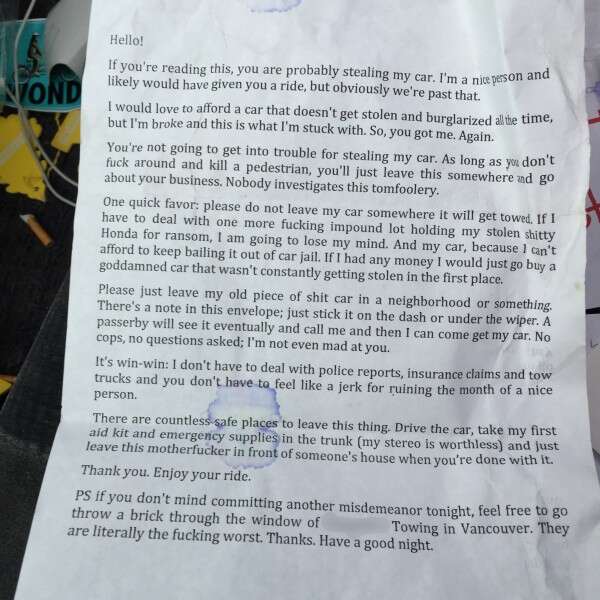 Hello!
If you're reading this, you are probably stealing my car. I'm a nice person and
likely would have given you a ride, but obviously we're past that.
I would love to afford a car that doesn't get stolen and burglarized all the time,
but I'm broke and this is what I'm stuck with. So, you got me. Again.
You're not going to get into trouble for stealing my car. As long as you don't
fuck around and kill a pedestrian, you'll just leave this somewhere and go
about your business. Nobody investigates this tomfoolery.
One quick favor: please do not leave my car somewhere it will get towed. If I
have to deal with one more fucking impound lot holding my stolen shitty
Honda for ransom, I am going to lose my mind. And my car, because I can't
afford to keep bailing it out of car jail. If I had any money I would just go buy a
goddamned car that wasn't constantly getting stolen in the first place.
Please just leave my old piece of shit car in a neighborhood or something.
There's a note in this envelope; just stick it on the dash or under the wiper. A
passerby will see it eventually and call me and then I can come get my car. No
cops, no questions asked; I'm not even mad at you.
It's win-win: I don't have to deal with police reports, insurance claims and tow
trucks and you don't have to feel like a jerk for ruining the month of a nice
person.
There are countless safe places to leave this thing. Drive the car, take my first
aid kit and emergency supplies in the trunk (my stereo is worthless) and just
leave this motherfucker in front of someone's house when you're done with it.
Thank you. Enjoy your ride.
PS if you don't mind committing another misdemeanor tonight, feel free to go
throw a brick through the window of Towing in Vancouver. They
are literally the fucking worst. Thanks. Have a good night.
OND